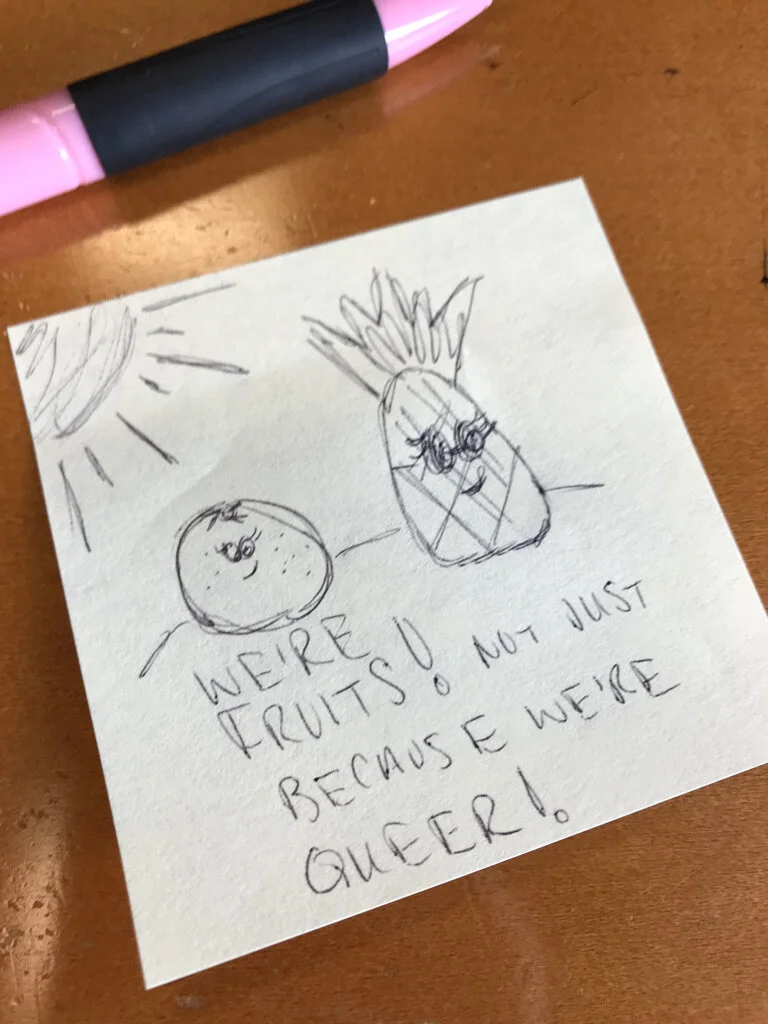 WE'RE
FRUITS! NOT JUST
BECAUSE WE'RE
QUEER!